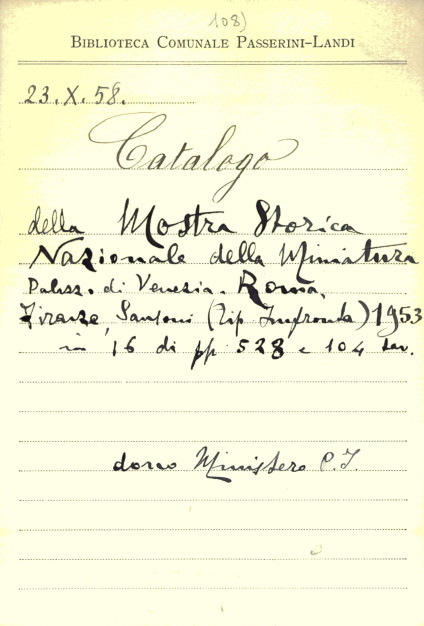 108)
BIBLIOTECA COMUNALE PASSERINI-LANDI
23.X.58.
Catalogo
della Mostra Storica
Nazionale della Miniatura
Palazz. di Venezia. Roma,
Firenze, Sansoni (Tip. Impronta) 1953
in 16 di pp 528 e 104 tav.
dono Ministero P.I.